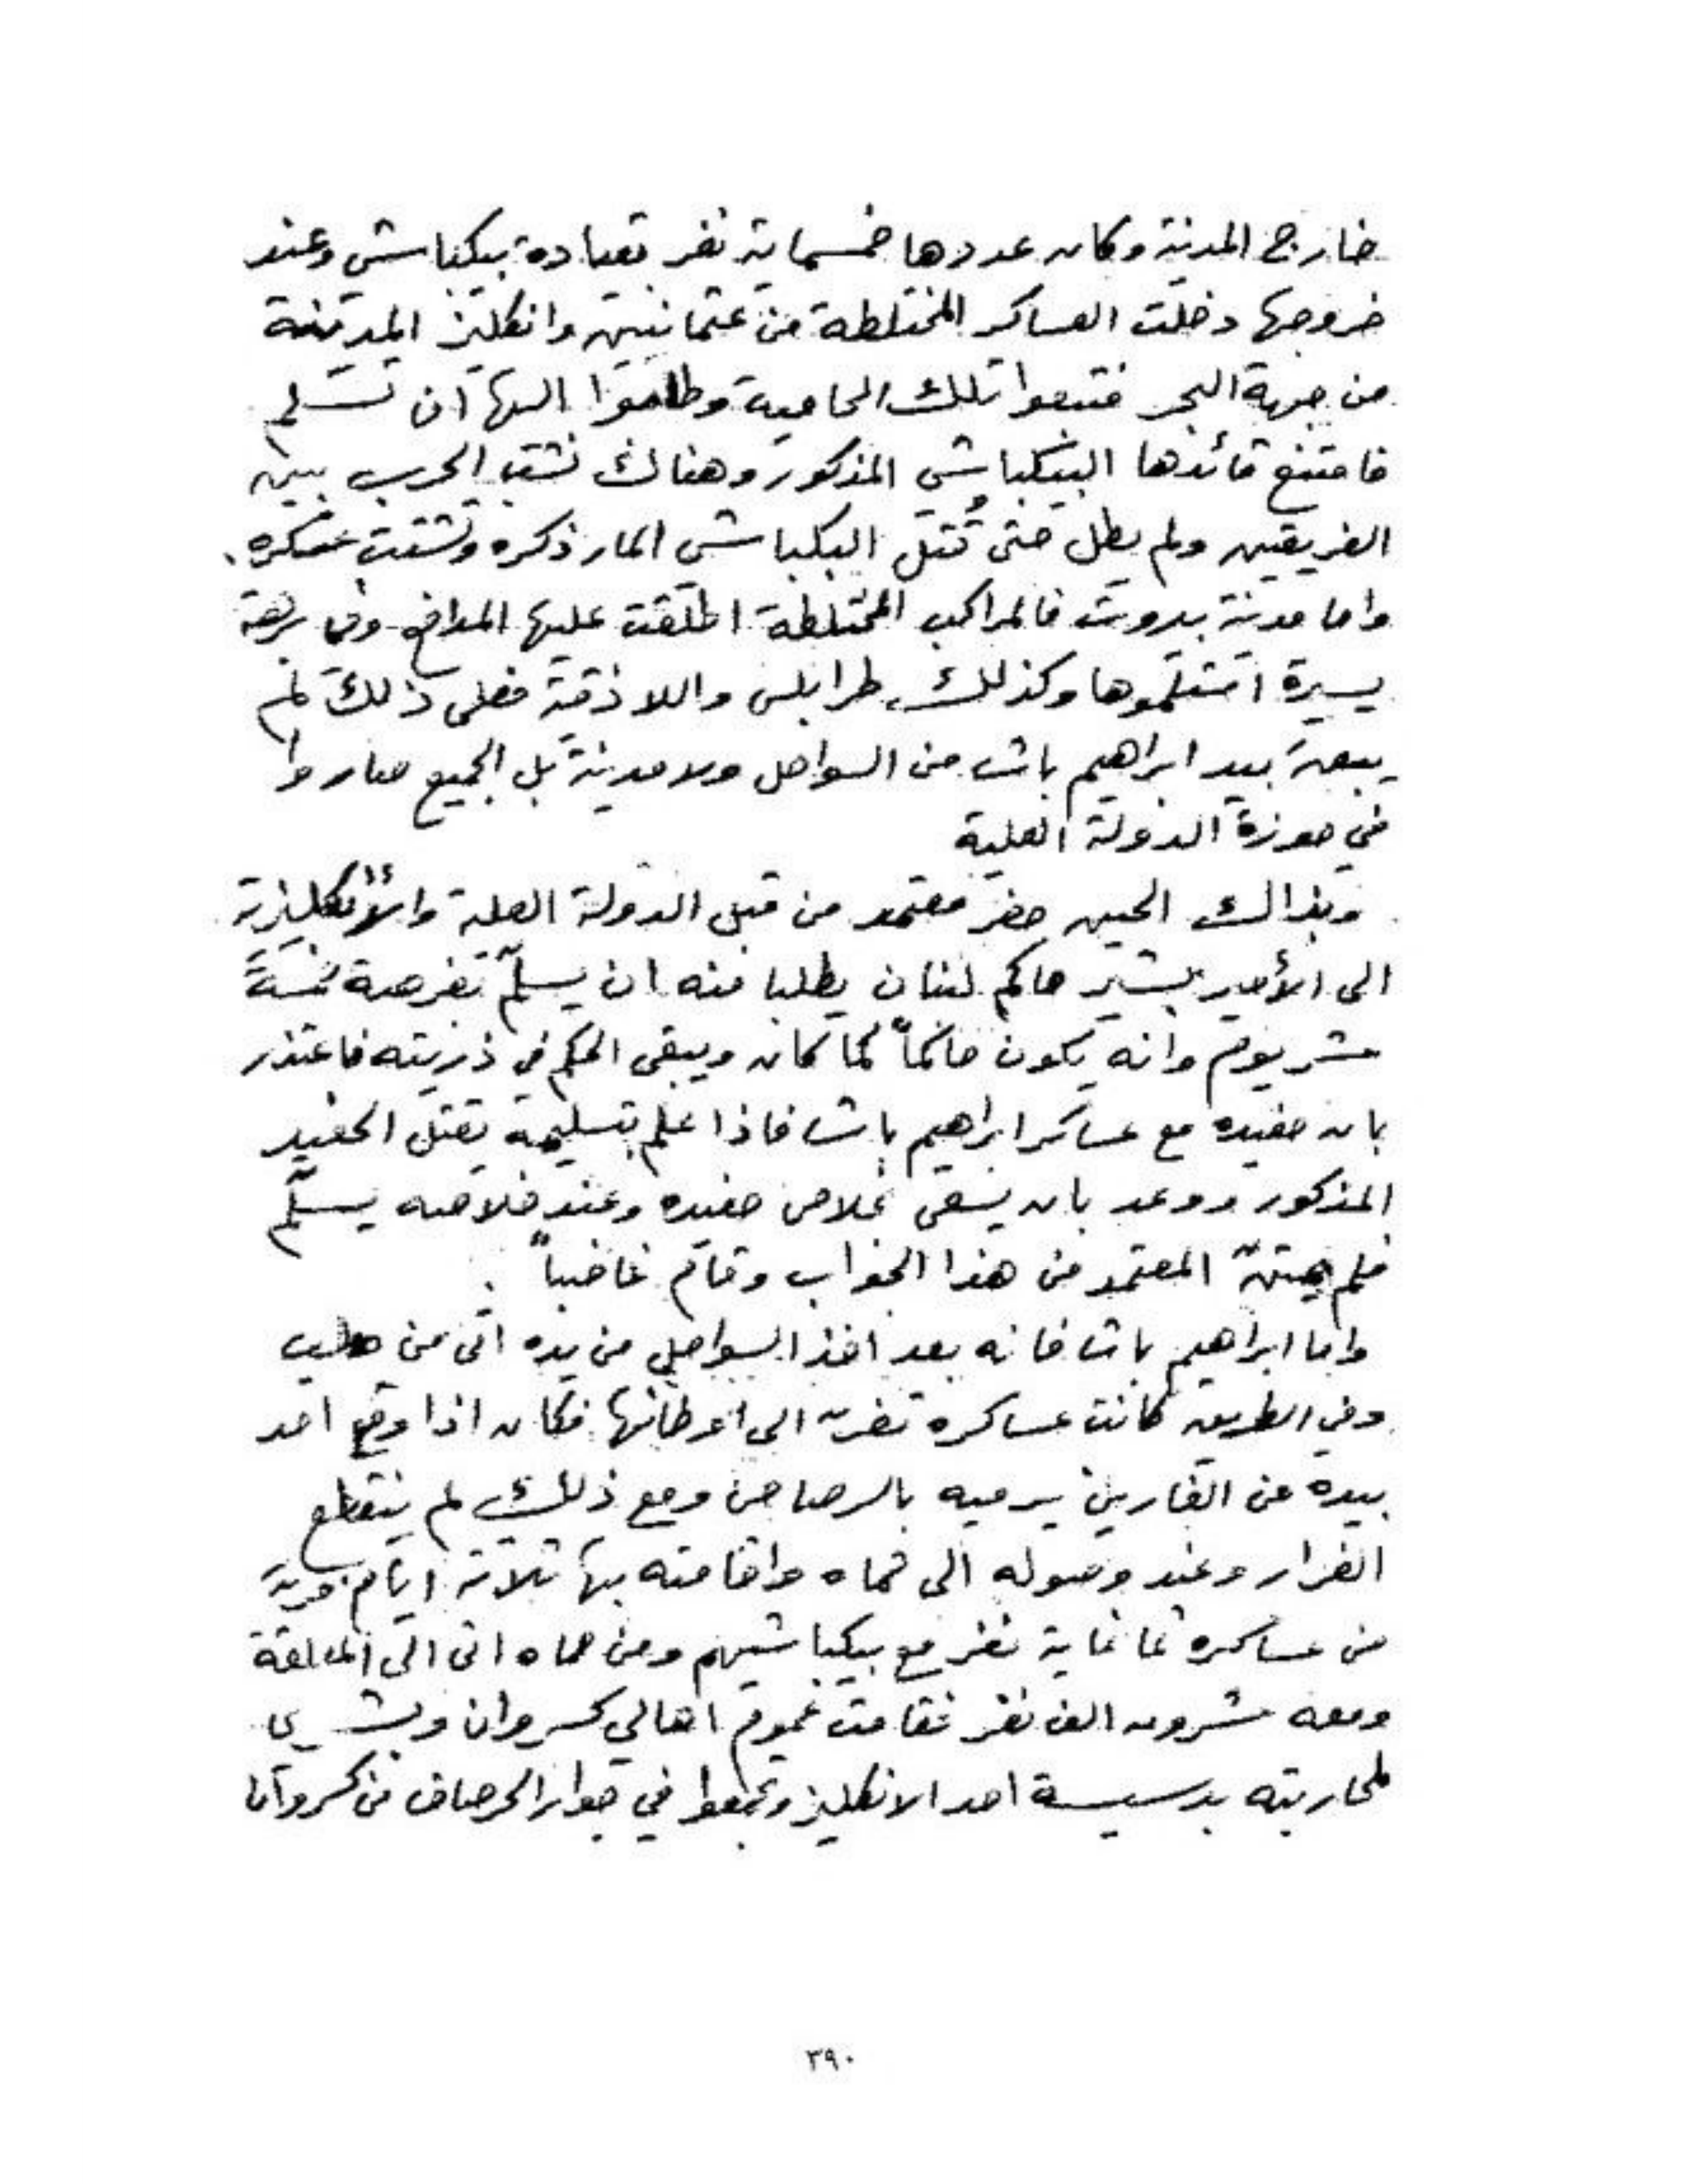 خارج المدينة وكان عددها خمسماية نفر بقيادة بيكباشي وعند
خروجها دخلت العساكر المختلطة من عثمانيين وانكليز المدينة
من جهة البحر فتبعوا تلك الحامية وطلبوا اليها ان تسلم
فامتنع قائدها البيكباشي المذكور وهناك نشب الحرب بين
الفريقين ولم يطل حتى قُتل البكباشي المار ذكره وتشتت عسكره.
واما مدينة بيروت فالمراكب المختلطة اطلقت عليها المدافع وفي برهة
يسيرة استلموها وكذلك طرابلس واللاذقية فعلى ذلك لم
يبق بيد ابراهيم باشا من السواحل ولا مدينة بل الجميع صاروا
في حوزة الدولة العلية
وبذالك الحين حضر معتمد من قبل الدولة العلية والأنكليزية
الى الأمير بشير حاكم لبنان يطلبا منه ان يسلّم بفرصة خمسة
عشر يوم وانه يكون حاكماً كما كان ويبقى الحكم في ذريته فاعتذر
بان حفيده مع عساكر ابراهيم باشا فاذا علم بتسليمه يقتل الحفيد
المذكور ووعد بان يسعى بخلاص حفيده وعند خلاصه يسلّم
فلم المعتمد من هذا الجواب وقام غاضباً.
واما ابراهيم باشا فانه بعد اخذ السواحل من يده اتى من حلب
وفي الطريق كانت عساكره تفر الى اوطانها فكان اذا وقع احد
بيده من الفارين يرميه بالرصاص ومع ذلك لم ينقطع
الفرار وعند وصوله الى حماه واقامته بها ثلاثة ايام
من عساكره ثمانماية نفر مع بيكباشيهم ومن حماه اتى الى المعلقة
ومعه عشرون الف نفر فقامت عموم اهالي كسروان وبشري
لمحاربته بدسيسة احد الانكليز وتجمعوا في جوار الحرصاف من كسروان
٣٩٠